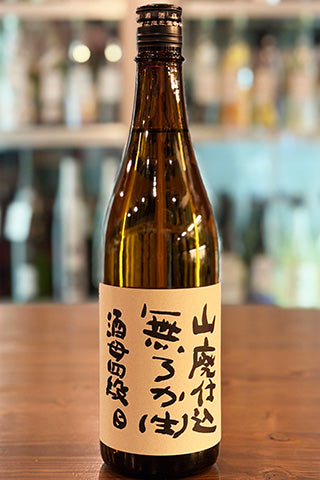 山廃仕込
無ろか生
酒母四段